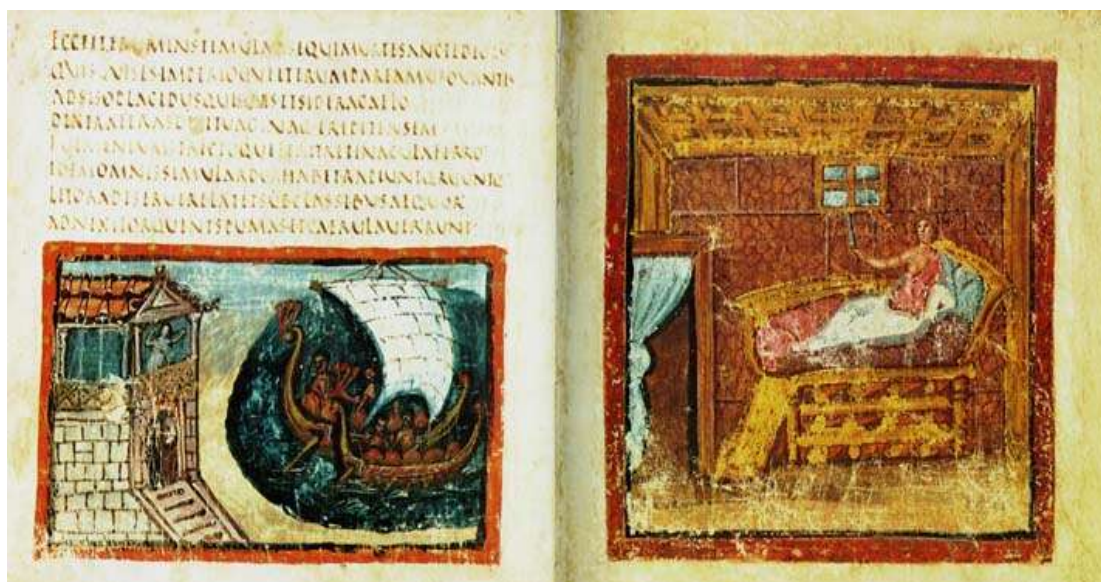 ECCEITERUMINSTIMULATSEQUIMURTESANCTEDEO
QUISQUISESIMPERIOQUEITERUMPAREMUSOVANTIS
ADSISOPLACIDUSQUE ETSIDERACAELO
DEXTRAFERAS VAGINAQUEERIPITENSEM
STRICTOQUEFERITRETINACULAFERRO
IDEMOMNISSIMULARDORHABETRAPIUNT
LITORADESERUERELATETSUBCLASSIBUSAEQUOR
ADNIXITORQUENTSPUMASETCAERULAVERRUNT